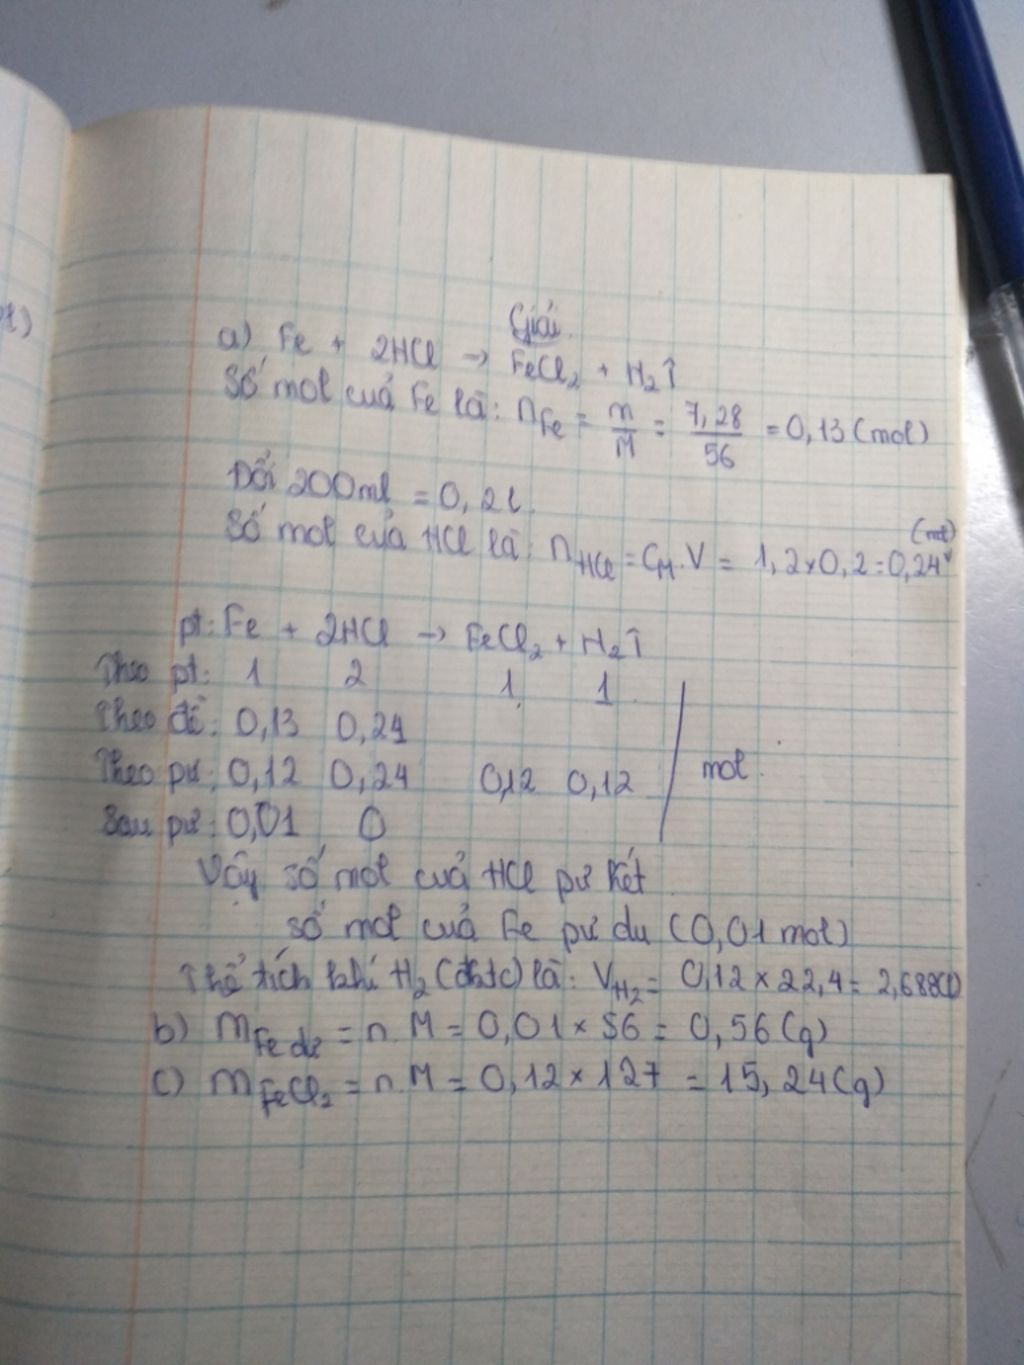 Giải
a) Fe + 2HCl → FeCl₂ + H₂↑
Số mol cuả Fe là: nFe = m/M = 7,28/56 = 0,13 (mol)
Đổi 200ml = 0,2l.
Số mol cuả HCl là: nHCl = CM.V = 1,2×0,2=0,24 (mol)
pt: Fe + 2HCl → FeCl₂ + H₂↑
Theo pt: 1 2 1 1
Theo đề: 0,13 0,24
Theo pư: 0,12 0,24 0,12 0,12 mol.
Sau pư: 0,01 0
Vậy số mol cuả HCl pư hết
số mol cuả Fe pư dư (0,01 mol)
Thể tích khí H₂ (đktc) là: VH₂ = 0,12 × 22,4 = 2,688(l)
b) mFe dư = n.M = 0,01 × 56 = 0,56 (g)
c) mFeCl₂ = n.M = 0,12 × 127 = 15,24 (g)